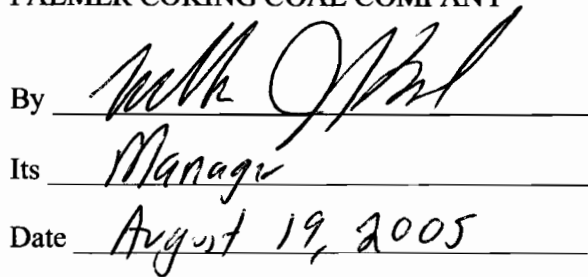 PALMER COKING COAL COMPANY
By
Its Manager
Date August 19, 2005